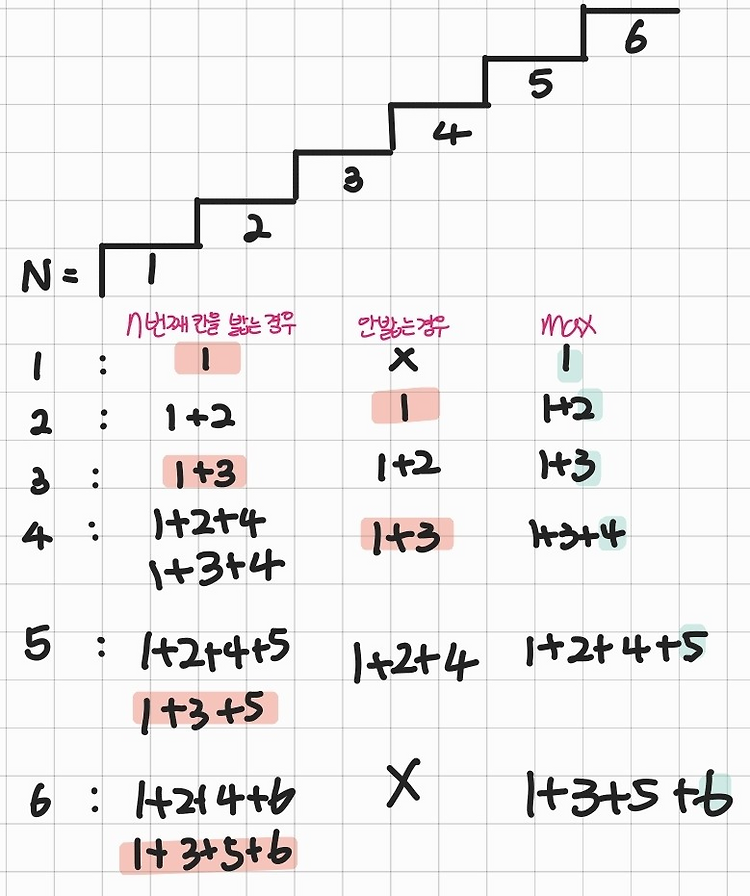 6
5
4
3
2
N = 1
n번째 칸을 밟는 경우 안밟는경우 max
1 : 1 X 1
2 : 1+2 1 1+2
3 : 1+3 1+2 1+3
4 : 1+2+4 1+3 1+3+4
1+3+4
5 : 1+2+4+5 1+2+4 1+2+4+5
1+3+5
6 : 1+2+4+6 X 1+3+5+6
1+3+5+6